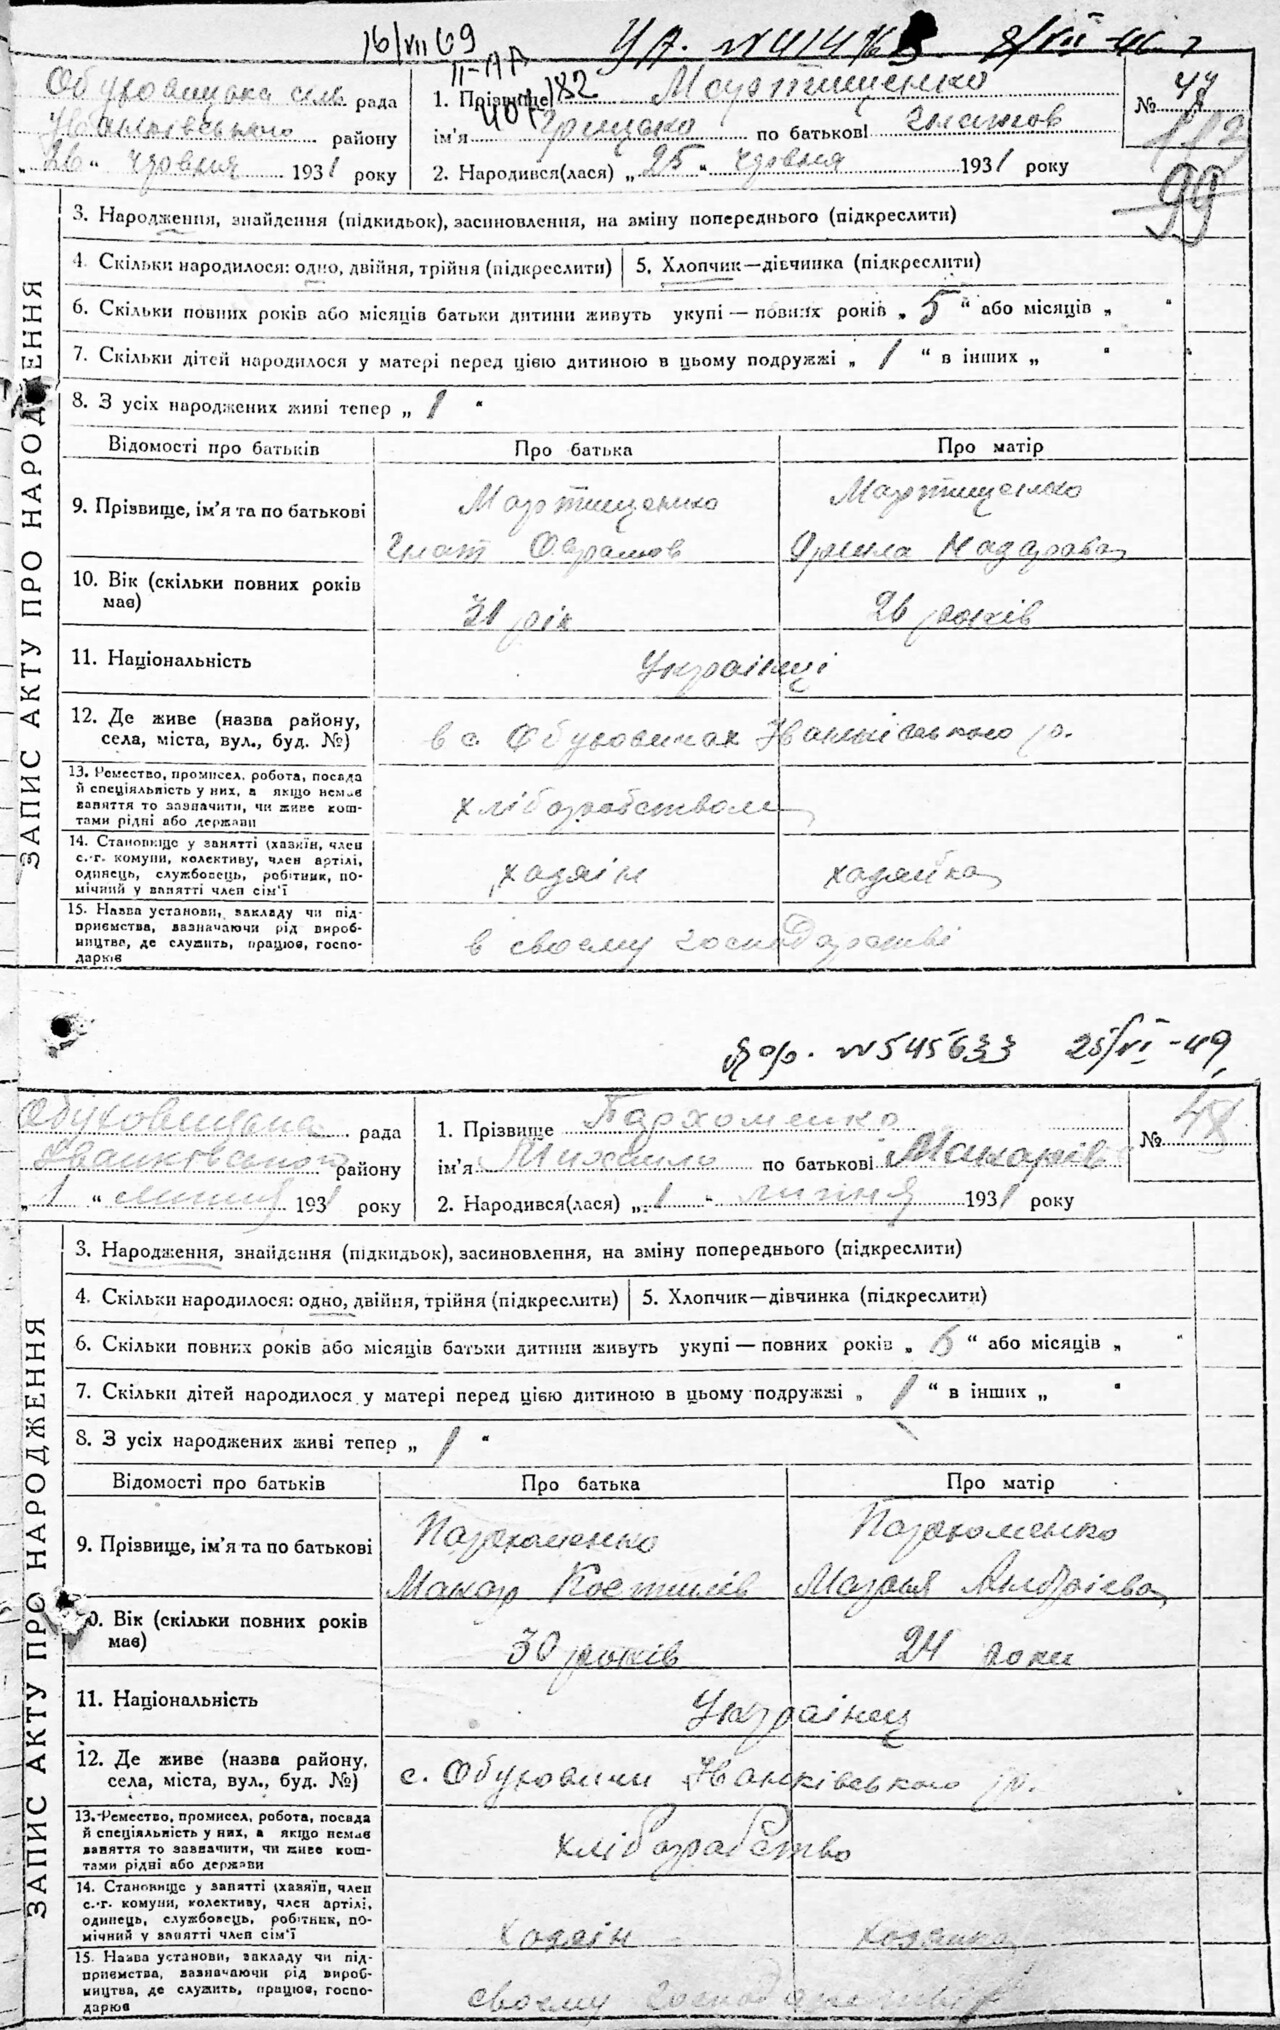 16/VII 69
II-АА
401182
8/VII-46 г
Обуховицька сіль рада
Іванківського району
„26“ червня 1931 року
1. Прізвище Мартищенко
ім'я Грицько по батькові Гнатов
2. Народився(лася) „25“ червня 1931 року
№ 47
99
ЗАПИС АКТУ ПРО НАРОДЖЕННЯ
3. Народження, знайдення (підкидьок), засиновлення, на зміну попереднього (підкреслити)
4. Скільки народилося: одно, двійня, трійня (підкреслити)
5. Хлопчик—дівчинка (підкреслити)
6. Скільки повних років або місяців батьки дитини живуть укупі — повних років „5“ або місяців „ “
7. Скільки дітей народилося у матері перед цією дитиною в цьому подружжі „1“ в інших „ “
8. З усіх народжених живі тепер „1“
Відомості про батьків Про батька Про матір
9. Прізвище, ім'я та по батькові
Мартищенко
Гнат
Мартищенко
10. Вік (скільки повних років має)
31 рік
26 років
11. Національність
Українці
12. Де живе (назва району, села, міста, вул., буд. №)
в с. Обуховичах Іванківського р.
13. Ремество, промисел, робота, посада
й спеціяльність у них, а якщо немає
заняття то зазначити, чи живе кош-
тами рідні або держави
хліборобством
14. Становище у занятті (хазяїн, член
с.-г. комуни, колективу, член артілі,
одинець, службовець, робітник, по-
мічний у занятті член сім'ї
хазяін
хазяйка
15. Назва установи, закладу чи під-
приємства, зазначаючи рід вироб-
ництва, де служить, працює, госпо-
дарює
в своєму господарстві
№545633 25/VI-49
Обуховицька рада
Іванківського району
„1“ липня 1931 року
1. Прізвище Пархоменко
ім'я Михайло по батькові Макарів
2. Народився(лася) „1“ липня 1931 року
№ 48
ЗАПИС АКТУ ПРО НАРОДЖЕННЯ
3. Народження, знайдення (підкидьок), засиновлення, на зміну попереднього (підкреслити)
4. Скільки народилося: одно, двійня, трійня (підкреслити)
5. Хлопчик—дівчинка (підкреслити)
6. Скільки повних років або місяців батьки дитини живуть укупі — повних років „6“ або місяців „ “
7. Скільки дітей народилося у матері перед цією дитиною в цьому подружжі „1“ в інших „ “
8. З усіх народжених живі тепер „1“
Відомості про батьків Про батька Про матір
9. Прізвище, ім'я та по батькові
Пархоменко
Макар Костянів
Пархоменко
Марья Андрієва
0. Вік (скільки повних років має)
30 років
24 роки
11. Національність
Українец
12. Де живе (назва району, села, міста, вул., буд. №)
с. Обуховичи Іванківського р.
13. Ремество, промисел, робота, посада
й спеціяльність у них, а якщо немає
заняття то зазначити, чи живе кош-
тами рідні або держави
хліборобство
14. Становище у занятті (хазяїн, член
с.-г. комуни, колективу, член артілі,
одинець, службовець, робітник, по-
мічний у занятті член сім'ї
хазяін
хозяйка
15. Назва установи, закладу чи під-
приємства, зазначаючи рід вироб-
ництва, де служить, працює, госпо-
дарює
своєму господарстві